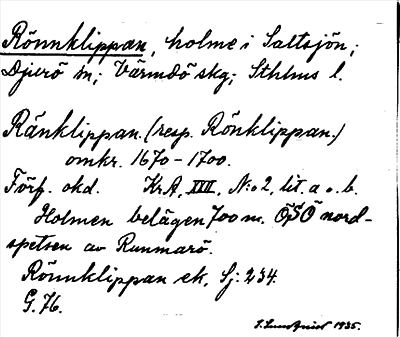 Rönnklippan, holme i Saltsjön;
Djurö sn; Värmdö skg; Sthlms l.
Ränklippan. (resp. Rönklippan.)
omkr. 1670-1700.
Förf. okd. KrA, XIII, N:o 2, lit. a o. b.
Holmen belägen 700 m. ÖSÖ nord-
spetsen av Runmarö.
Rönnklippan ek, Sj: 234.
G. 76.
1935.